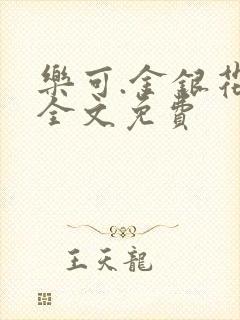 樂可.金銀花
全文免費
王天龍